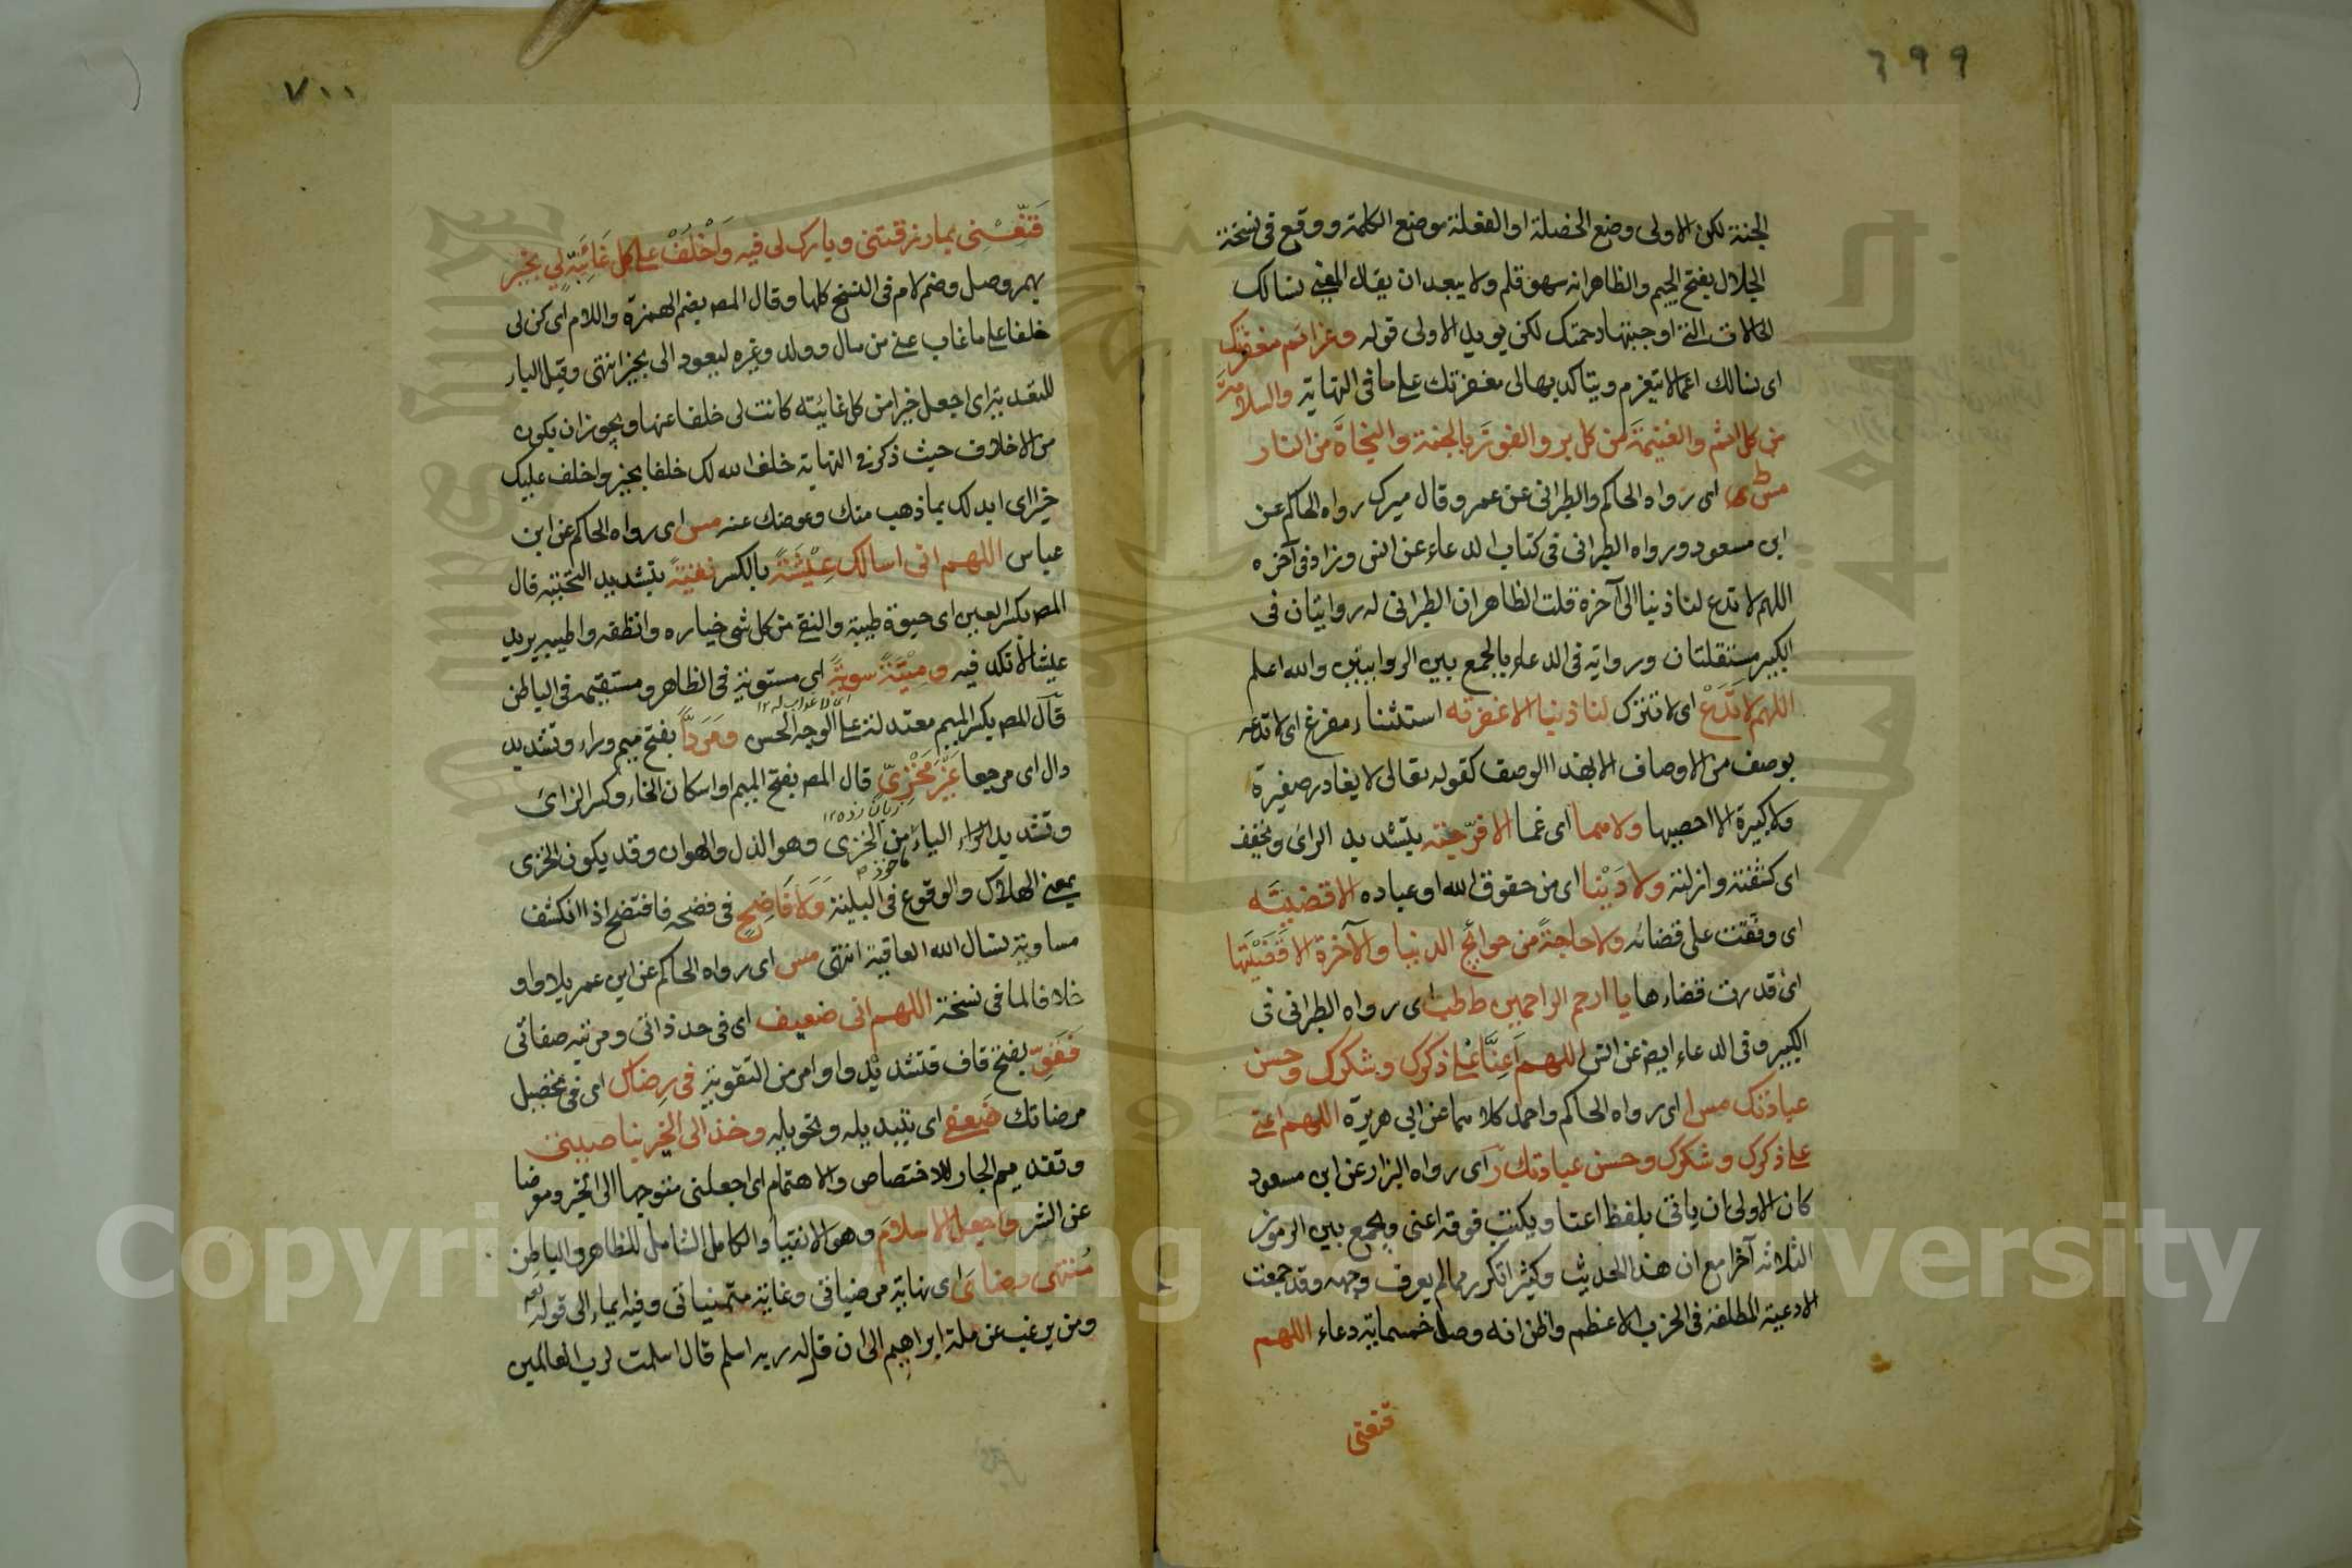 ٦٩٩
الجنة لكن الاولى وضع الخصلة او الفعلة موضع الكلمة ووقع فى نسخة
الجلال بفتح الجيم والظاهر انه سهو قلم ولا يبعد ان يقال المعنى نسالك
الحالات التى اوجبتها رحمتك لكن يويد الاولى قوله وعزائم مغفرتك
اى نسالك اعمالا يتعزم ويتاكد بها لى مغفرتك على ما فى النهاية والسلامة
من كل اثم والغنيمة من كل بر والفوز بالجنة والنجاة من النار
مس ط اى رواه الحاكم والطبرانى عن عمر وقال ميرك رواه الحاكم عن
ابن مسعود ورواه الطبرانى فى كتاب الدعاء عن انس وزاد فى آخره
اللهم لا تدع لنا ذنبا الى آخره قلت الظاهر ان الطبرانى له روايتان فى
الكبير مستقلتان وروايته فى الدعاء بالجمع بين الروايتين والله اعلم
اللهم لا تدع اى لا تترك لنا ذنبا الا غفرته استثناء مفرغ اى لا تدعه
بوصف من الاوصاف الا بهذا الوصف كقوله تعالى لا يغادر صغيرة
ولا كبيرة الا احصيها ولا هما اى غما الا فرّجته بتشديد الراى ويخفف
اى كشفته وازلته ولا دَيْنا اى من حقوق الله او عباده الا قضيتَه
اى وفقت على قضائه ولا حاجةً من حوائج الدنيا والآخرة الا قضيتها
اى قدرت قضاءها يا ارحم الراحمين ط طب اى رواه الطبرانى فى
الكبير وفى الدعاء ايضا عن انس اللهم اَعِنَّا على ذكرك وشكرك وحسن
عبادتك مس ا اى رواه الحاكم واحمد كلاهما عن ابى هريرة اللهم اعنى
على ذكرك وشكرك وحسن عبادتك ر اى رواه البزار عن ابن مسعود
كان الاولى ان ياتى بلفظ اعنا ويكتب فوقه اعنى ويجمع بين الرموز
الثلاثه آخرا مع ان هذا الحديث وكثيرا تكرر مما لم يعرف وجهه وقد جمعت
الادعية المطلقة فى الحزب الاعظم واظن انه وصل خمسماية دعاء اللهم
قنعنى
٧٠٠
قَنِّعْنِى بما رزقتنى وبارك لى فيه وَاخْلُفْ على كل غَائِبَةٍ لى بخير
بهمز وصل وضم لام فى النسخ كلها وقال المصـ بضم الهمزة واللام اى كن لى
خلفا على ما غاب عنى من مال وولد وغيره ليعود الى بخير انتهى وقيل الباء
للتعدية اى اجعل خيرا من كل غائبته كانت لى خلفا عنها ويجوز ان يكون
من الاخلاف حيث ذكر فى النهاية خلف الله لك خلفا بخير واخلف عليك
خيرا اى ابدلك بما ذهب منك وعوضك عنه مس اى رواه الحاكم عن ابن
عباس اللهم انى اسالك عِيْشَةً بالكسر نقيّةً بتشديد التحتيه قال
المصـ بكسر العين اى حيوة طيبة والنقى من كل شى خياره وانظفه واطيبه يريد
عيشا لا نكد فيه ومِيْتَةً سويّةً اى مستوية فى الظاهر ومستقيمة فى الباطن
قال المصـ بكسر الميم معتدلة على الوجه الحسن ومَرَدًّا بفتح ميم وراء وتشديد
دال اى مرجعا غَيْرَ مَخْزِىّ قال المصـ بفتح الميم او اسكان الخاء وكسر الزاى
وتشديد الراء الياء من الخزى وهو الذل والهوان وقد يكون الخزى
ماخوذ
بمعنى الهلاك والوقوع فى البلية وَلَا فَاضِحٍ فى فضحه فافتضح اذا انكشف
مساويه نسال الله العافية انتهى مس اى رواه الحاكم عن ابن عمر بلا واو
خلافا لما فى نسخة اللهم انى ضعيف اى فى حد ذاتى ومرتبه صفاتى
فَقَوِّ بفتح قاف فتشديد واو امر من التقوية فى رِضاك اى فى تحصيل
مرضاتك ضعفى اى بتبديله وتحويله وخذ الى الخير بناصيتى
وتقديم الجار للاختصاص والاهتمام اى اجعلنى متوجها الى الخير ومعرضا
عن الشر واجعل الاسلام وهو الانقياد الكامل الشامل للظاهر والباطن
مُنتهى رضاىَ اى نهاية مرضياتى وغاية متمنياتى وفيه ايماء الى قوله تعـ
ومن يرغب عن ملة ابراهيم الى ان قال له ربه اسلم قال اسلمت لرب العالمين
Copyright © King Saud University